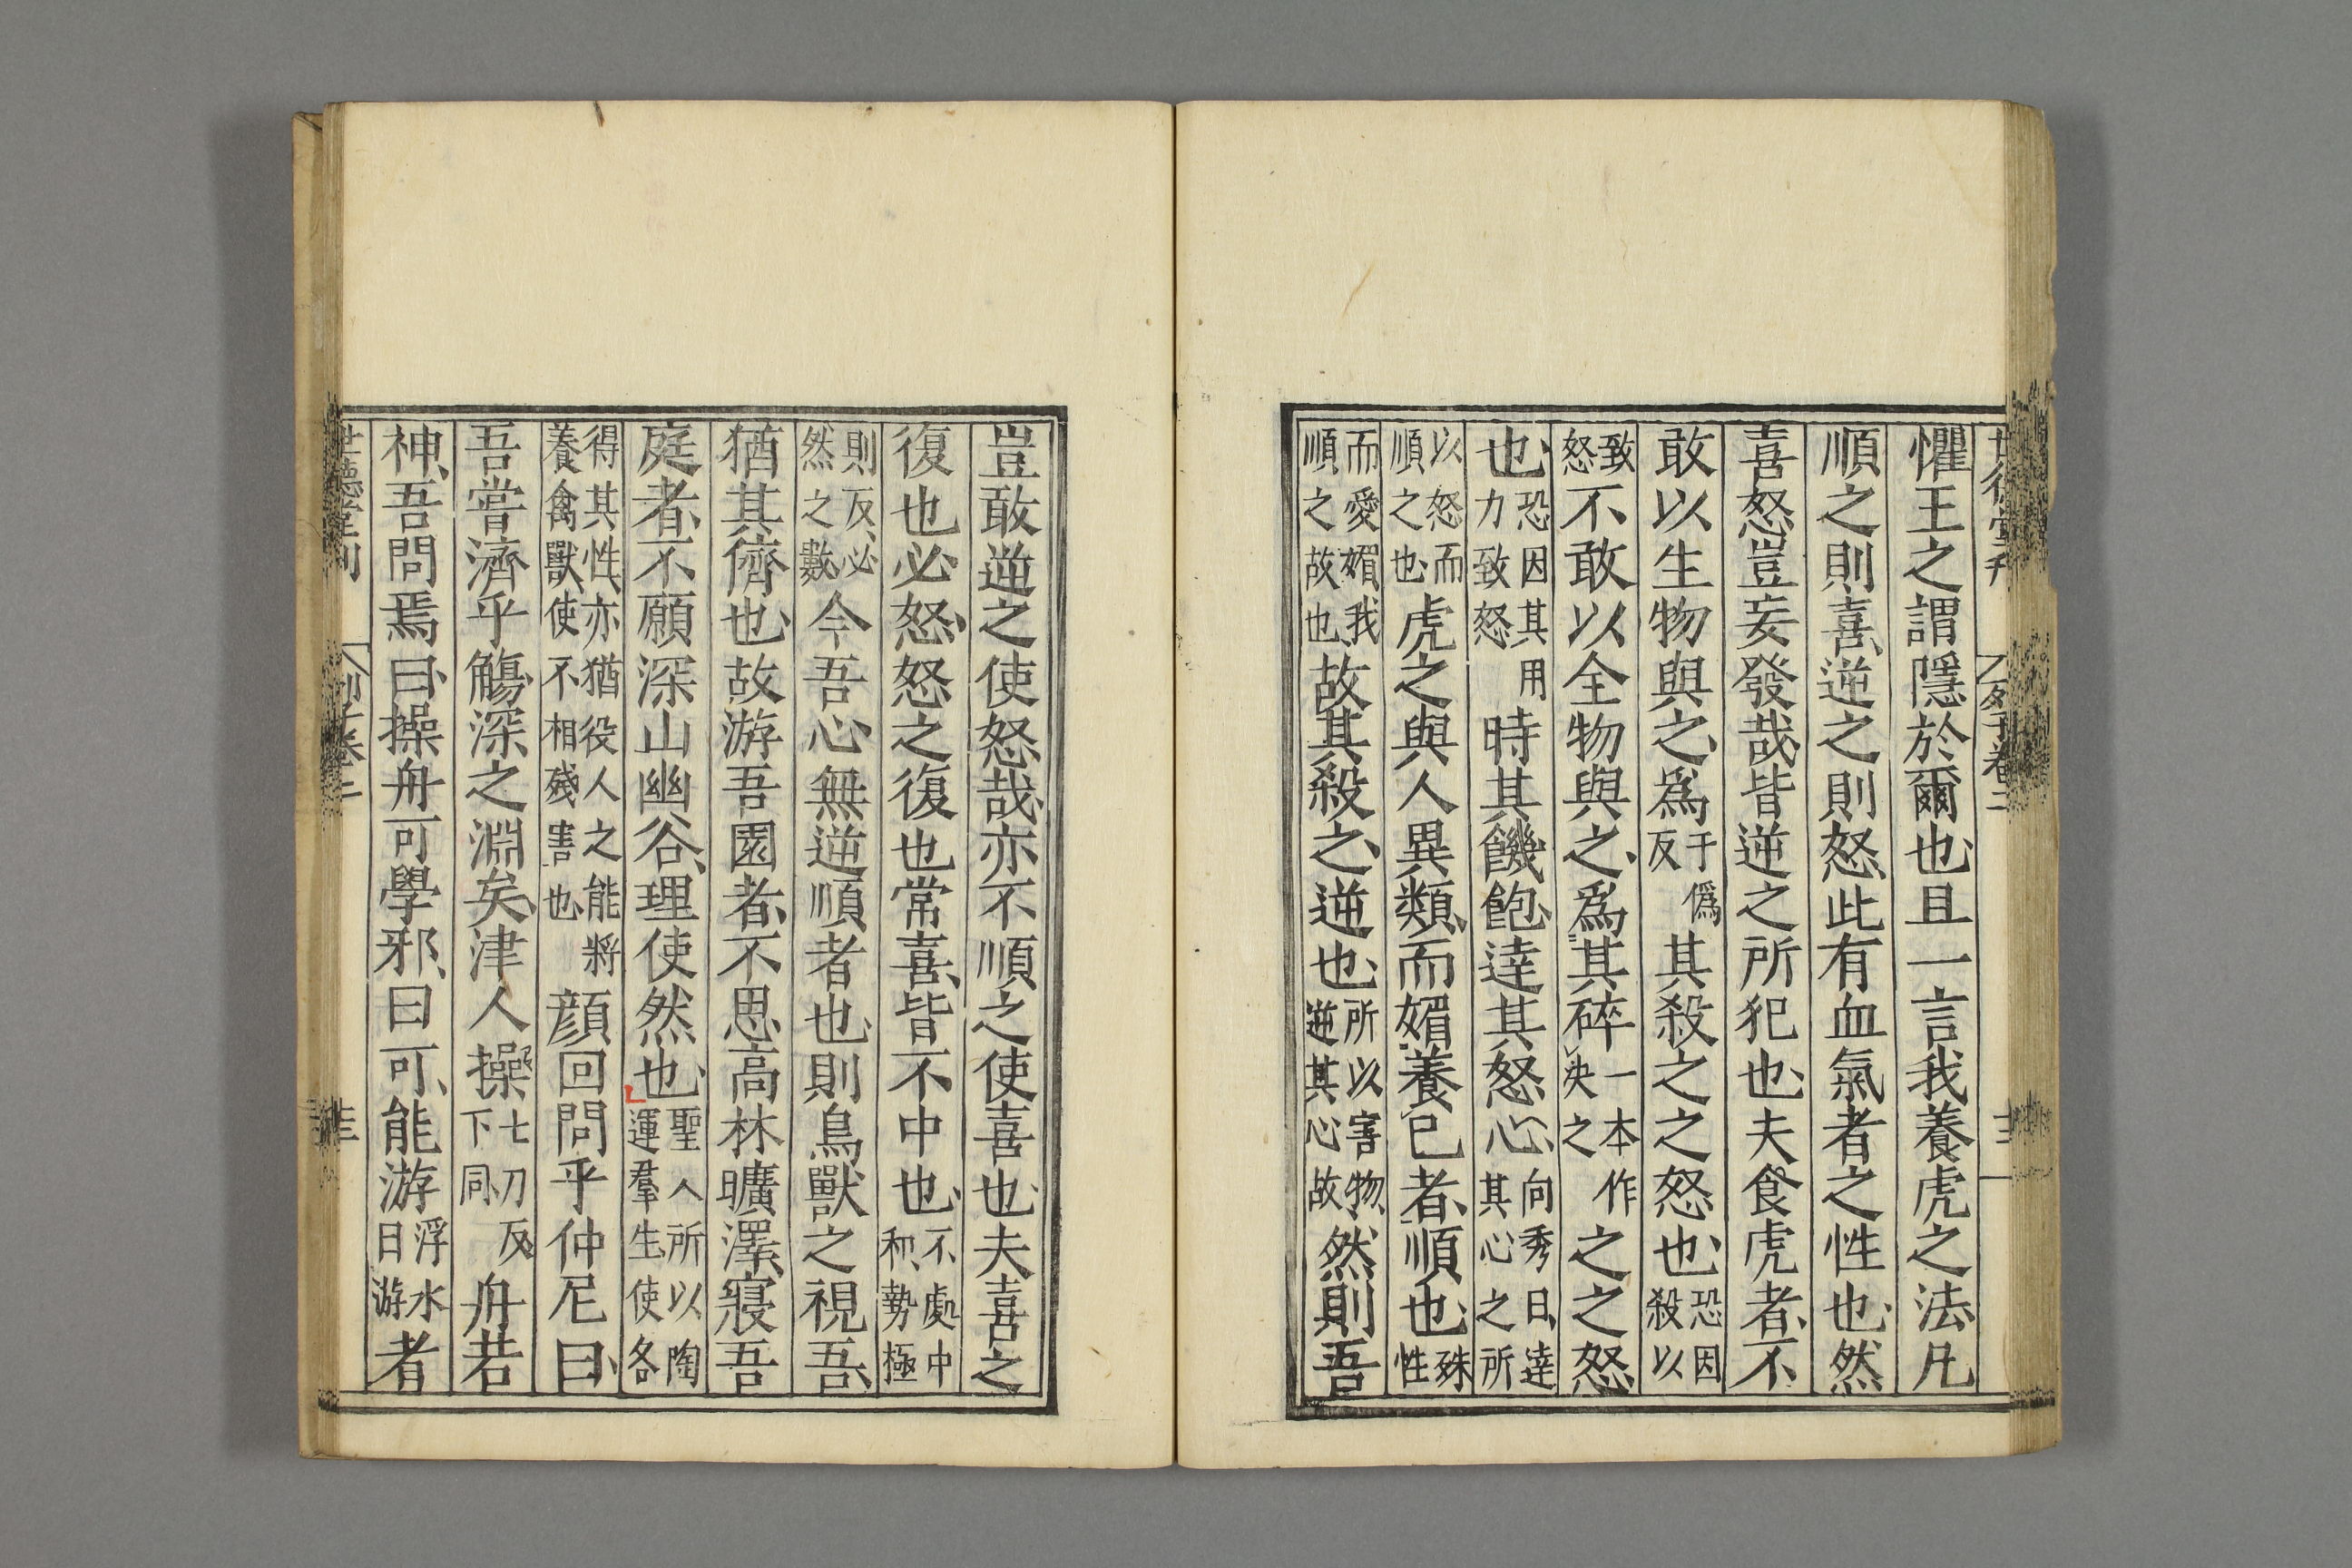 懼王之謂隱於爾也且一言我養虎之法凡
順之則喜逆之則怒此有血氣者之性也然
喜怒豈妄發哉皆逆之所犯也夫食虎者不
敢以生物與之爲于僞反其殺之之怒也恐因殺以
致怒不敢以全物與之爲其碎一本作决之之之怒
也恐因其用力致怒時其饑飽達其怒心向秀曰達其心之所
以怒而順之也虎之與人異類而媚養己者順也殊性
而愛媚我順之故也故其殺之逆也所以害物逆其心故然則吾
豈敢逆之使怒哉亦不順之使喜也夫喜之
復也必怒怒之復也常喜皆不中也不處中和勢極
則反必然之數今吾心無逆順者也則鳥獸之視吾
猶其儕也故游吾園者不思高林曠澤寢吾
庭者不願深山幽谷理使然也聖人所以陶運羣生使各
得其性亦猶役人之能將養禽獸使不相殘害也顔回問乎仲尼曰
吾嘗濟乎觴深之淵矣津人操七刀反下同舟若
神吾問焉曰操舟可學邪曰可能游浮水曰游者
世德堂刊
列子卷二